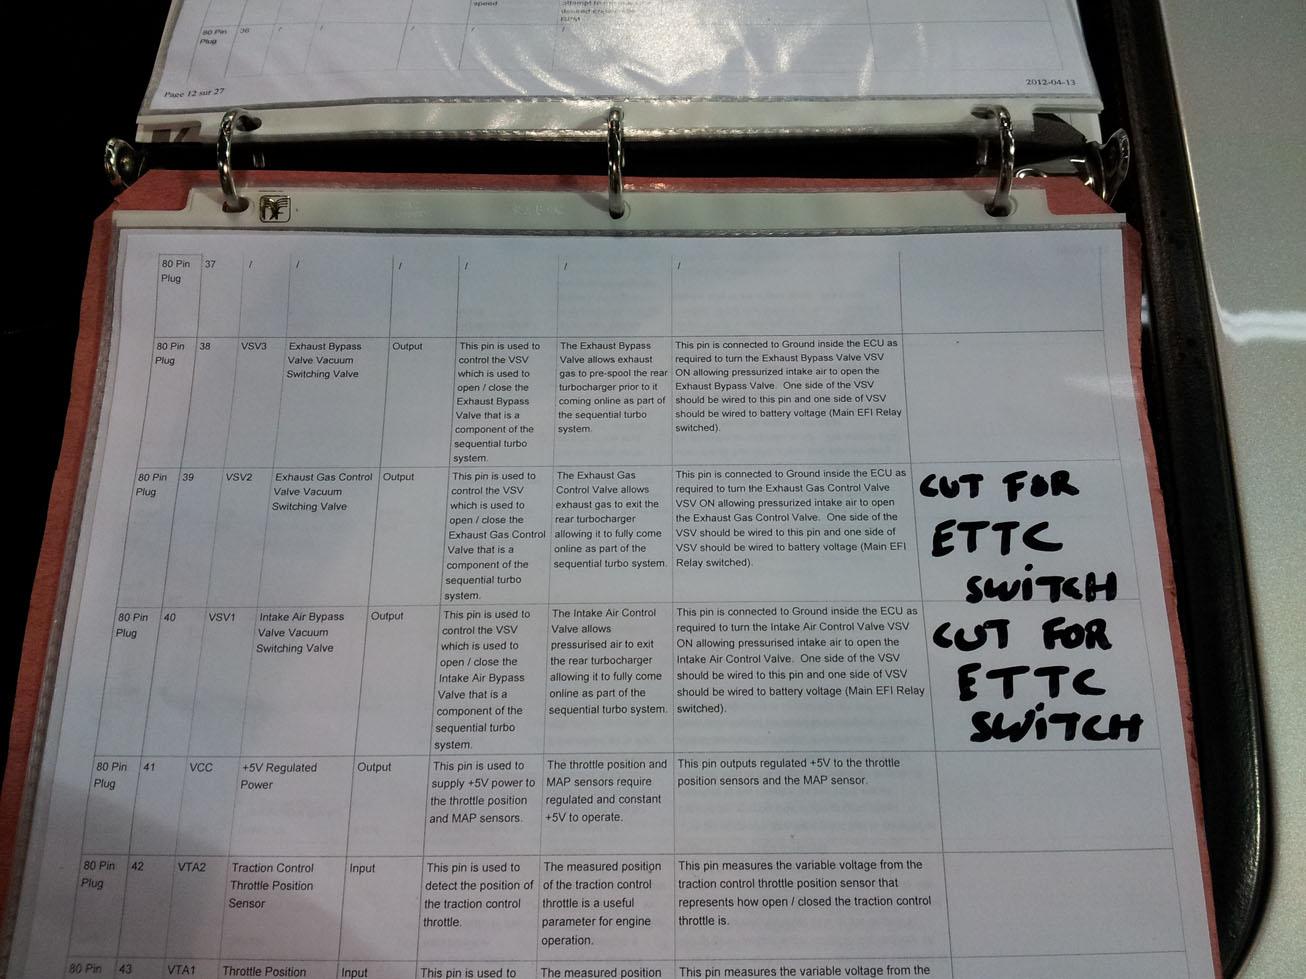 speed
desired engine idle
RPM
80 Pin Plug 36 / / / / /
Page 12 sur 27
2012-04-13
80 Pin
Plug
37
/
/
/
/
/
/
80 Pin
Plug
38
VSV3
Exhaust Bypass
Valve Vacuum
Switching Valve
Output
This pin is used to
control the VSV
which is used to
open / close the
Exhaust Bypass
Valve that is a
component of the
sequential turbo
system.
The Exhaust Bypass
Valve allows exhaust
gas to pre-spool the rear
turbocharger prior to it
coming online as part of
the sequential turbo
system.
This pin is connected to Ground inside the ECU as
required to turn the Exhaust Bypass Valve VSV
ON allowing pressurized intake air to open the
Exhaust Bypass Valve. One side of the VSV
should be wired to this pin and one side of VSV
should be wired to battery voltage (Main EFI Relay
switched).
80 Pin
Plug
39
VSV2
Exhaust Gas Control
Valve Vacuum
Switching Valve
Output
This pin is used to
control the VSV
which is used to
open / close the
Exhaust Gas Control
Valve that is a
component of the
sequential turbo
system.
The Exhaust Gas
Control Valve allows
exhaust gas to exit the
rear turbocharger
allowing it to fully come
online as part of the
sequential turbo system.
This pin is connected to Ground inside the ECU as
required to turn the Exhaust Gas Control Valve
VSV ON allowing pressurized intake air to open
the Exhaust Gas Control Valve. One side of the
VSV should be wired to this pin and one side of
VSV should be wired to battery voltage (Main EFI
Relay switched).
CUT FOR
ETTC
SWiTCH
80 Pin
Plug
40
VSV1
Intake Air Bypass
Valve Vacuum
Switching Valve
Output
This pin is used to
control the VSV
which is used to
open / close the
Intake Air Bypass
Valve that is a
component of the
sequential turbo
system.
The Intake Air Control
Valve allows
pressurised air to exit
the rear turbocharger
allowing it to fully come
online as part of the
sequential turbo system.
This pin is connected to Ground inside the ECU as
required to turn the Intake Air Control Valve VSV
ON allowing pressurised intake air to open the
Intake Air Control Valve. One side of the VSV
should be wired to this pin and one side of VSV
should be wired to battery voltage (Main EFI Relay
switched).
CUT FOR
ETTC
SWiTCH
80 Pin
Plug
41
VCC
+5V Regulated
Power
Output
This pin is used to
supply +5V power to
the throttle position
and MAP sensors.
The throttle position and
MAP sensors require
regulated and constant
+5V to operate.
This pin outputs regulated +5V to the throttle
position sensors and the MAP sensor.
80 Pin
Plug
42
VTA2
Traction Control
Throttle Position
Sensor
Input
This pin is used to
detect the position of
the traction control
throttle.
The measured position
of the traction control
throttle is a useful
parameter for engine
operation.
This pin measures the variable voltage from the
traction control throttle position sensor that
represents how open / closed the traction control
throttle is.
80 Pin
43
VTA1
Throttle Position
Input
This pin is used to
The measured position
This pin measures the variable voltage from the